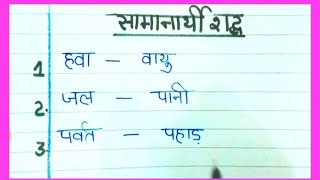 सामानार्थी शब्द
1 हवा – वायु
2. जल – पानी
3. पर्वत – पहाड़